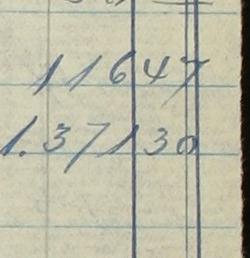 11647
1.37130